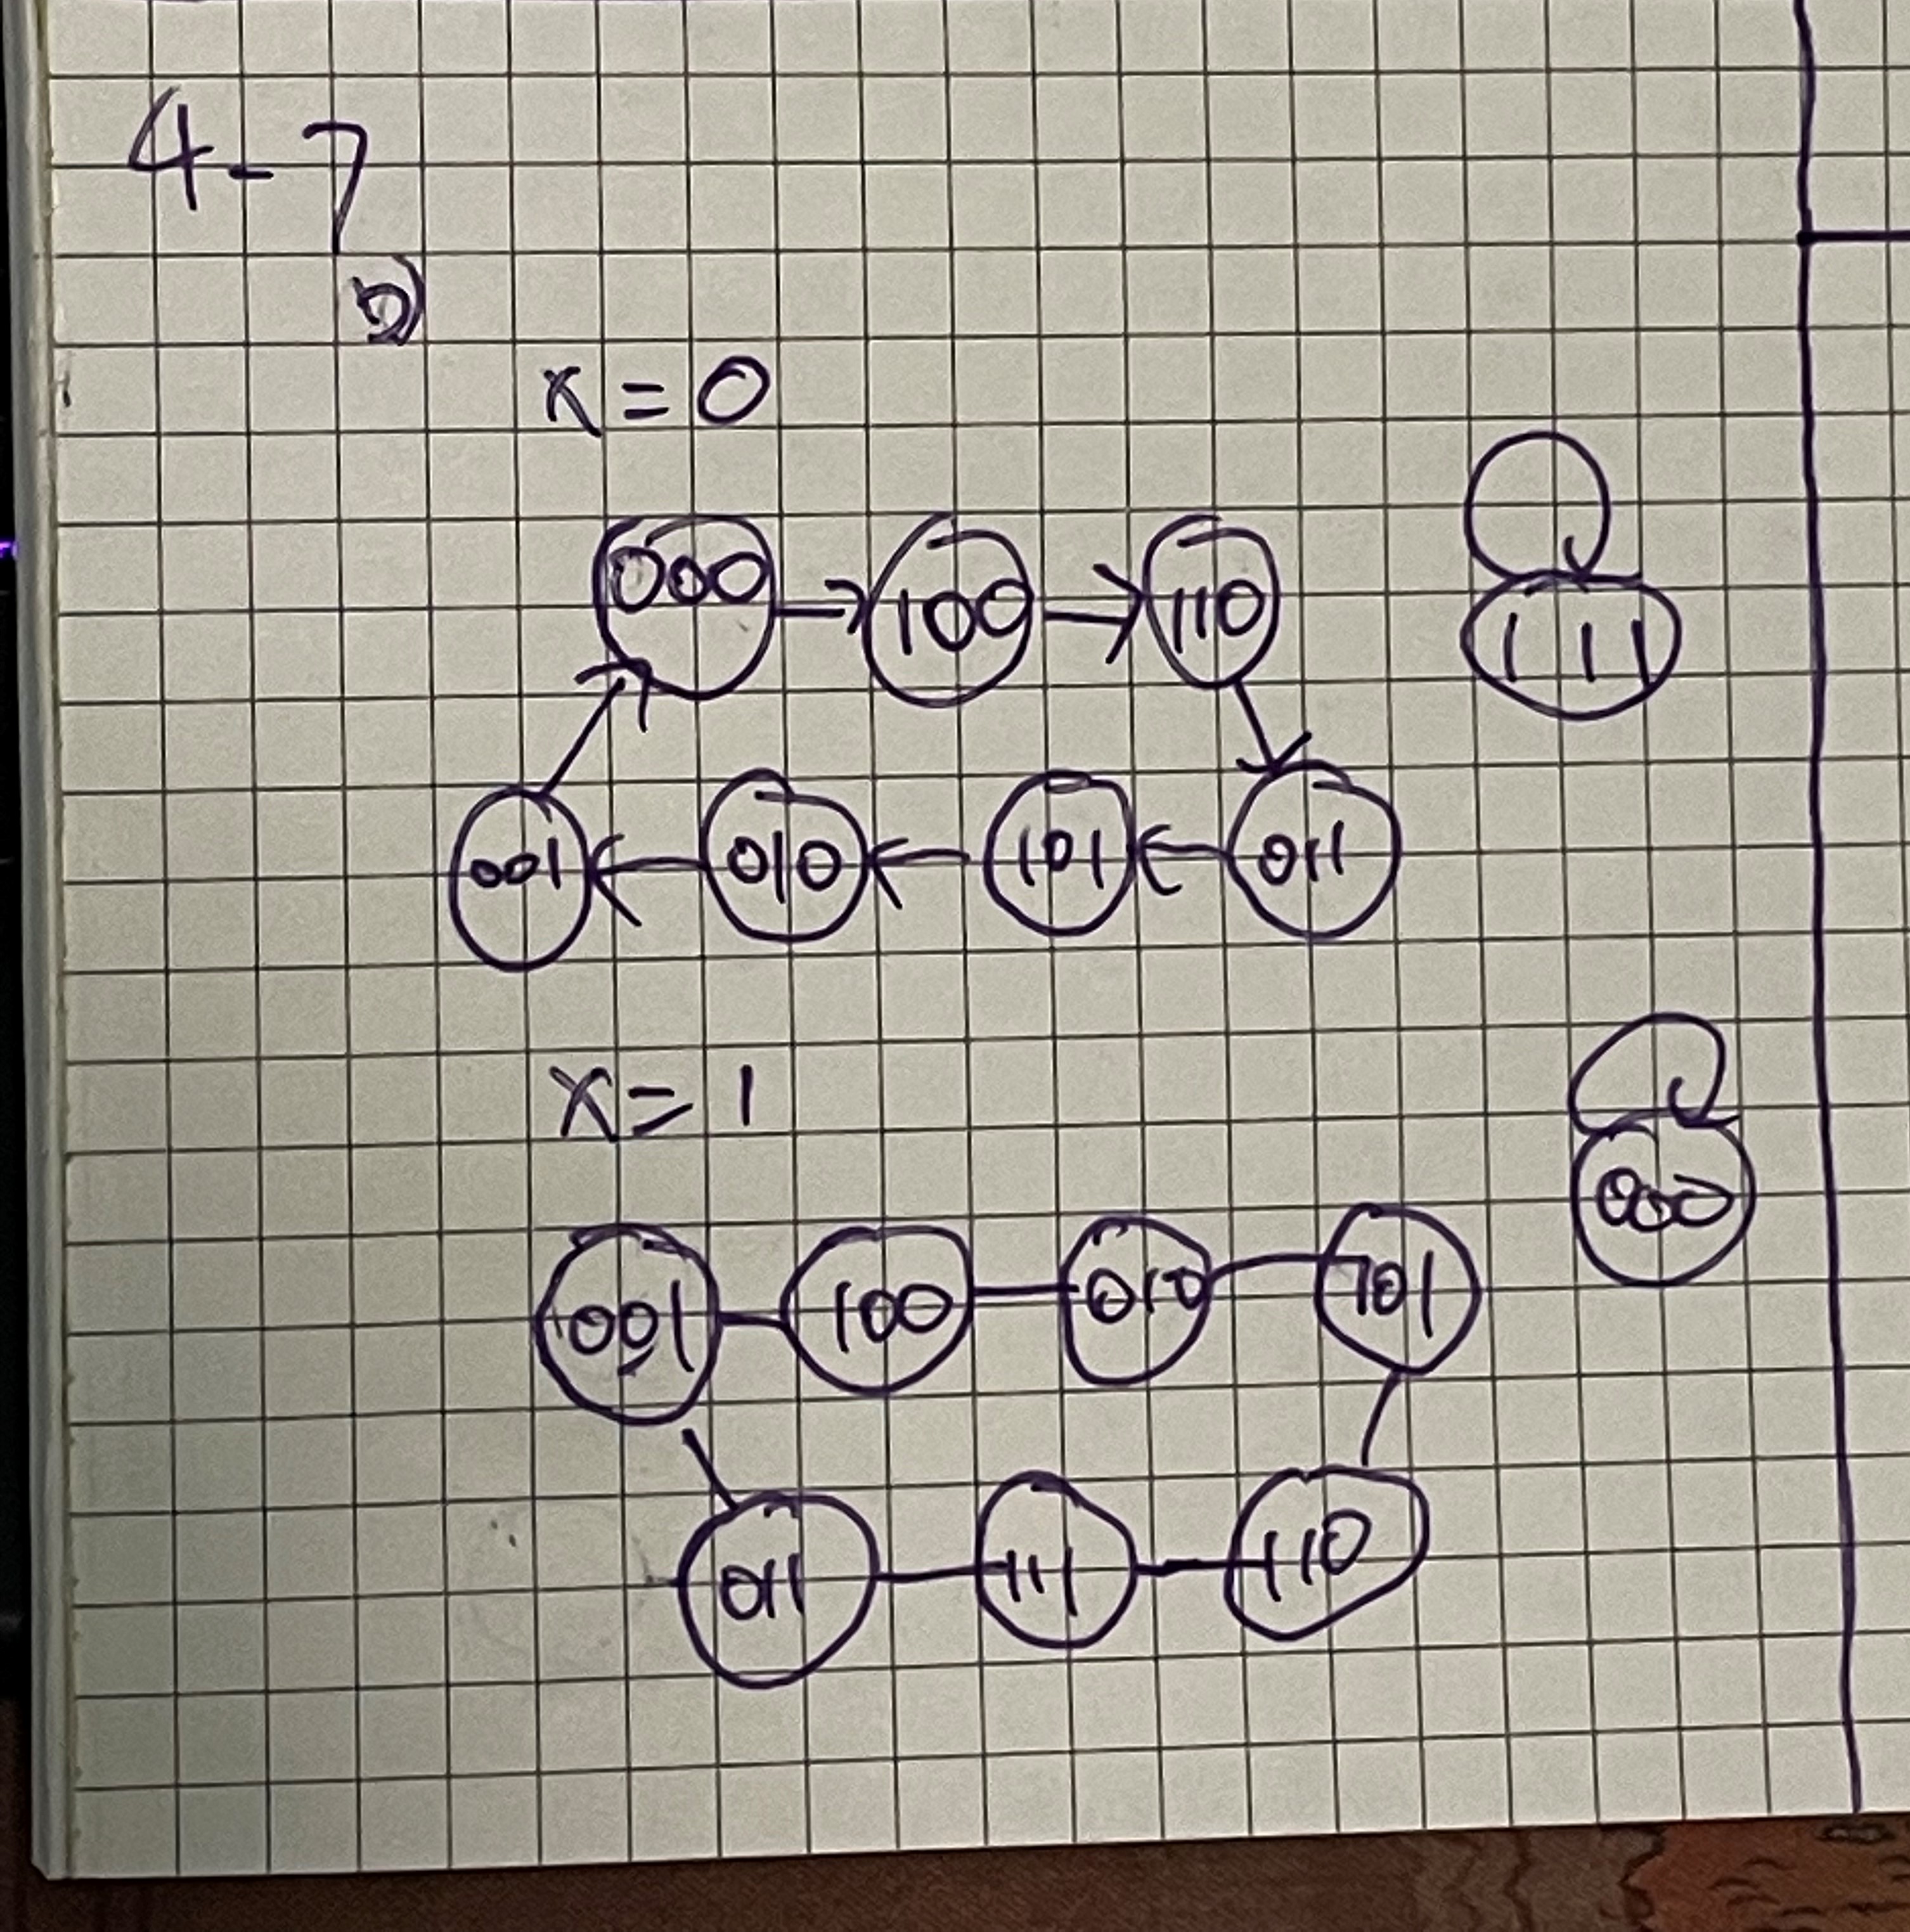 4-7
b)
x = 0
000 100 110 111
001 010 101 011
x = 1
000
001 100 010 101
011 111 110